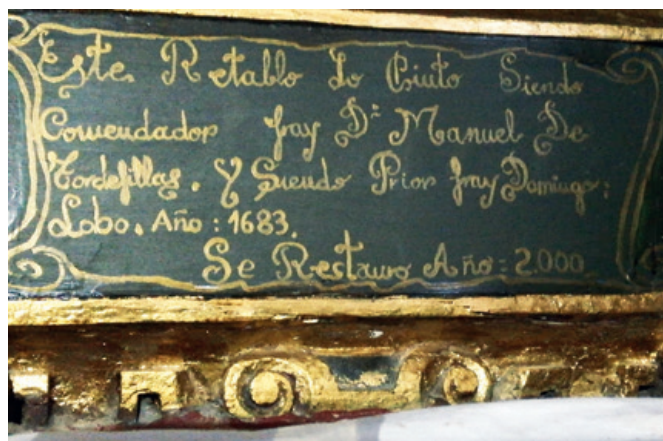 Este Retablo Lo Pinto Siendo
Comendador fray Dⁿ Manuel De
Tordesillas. Y Siendo Prior fray Domingo:
Lobo. Año: 1683.
Se Restauro Año = 2.000